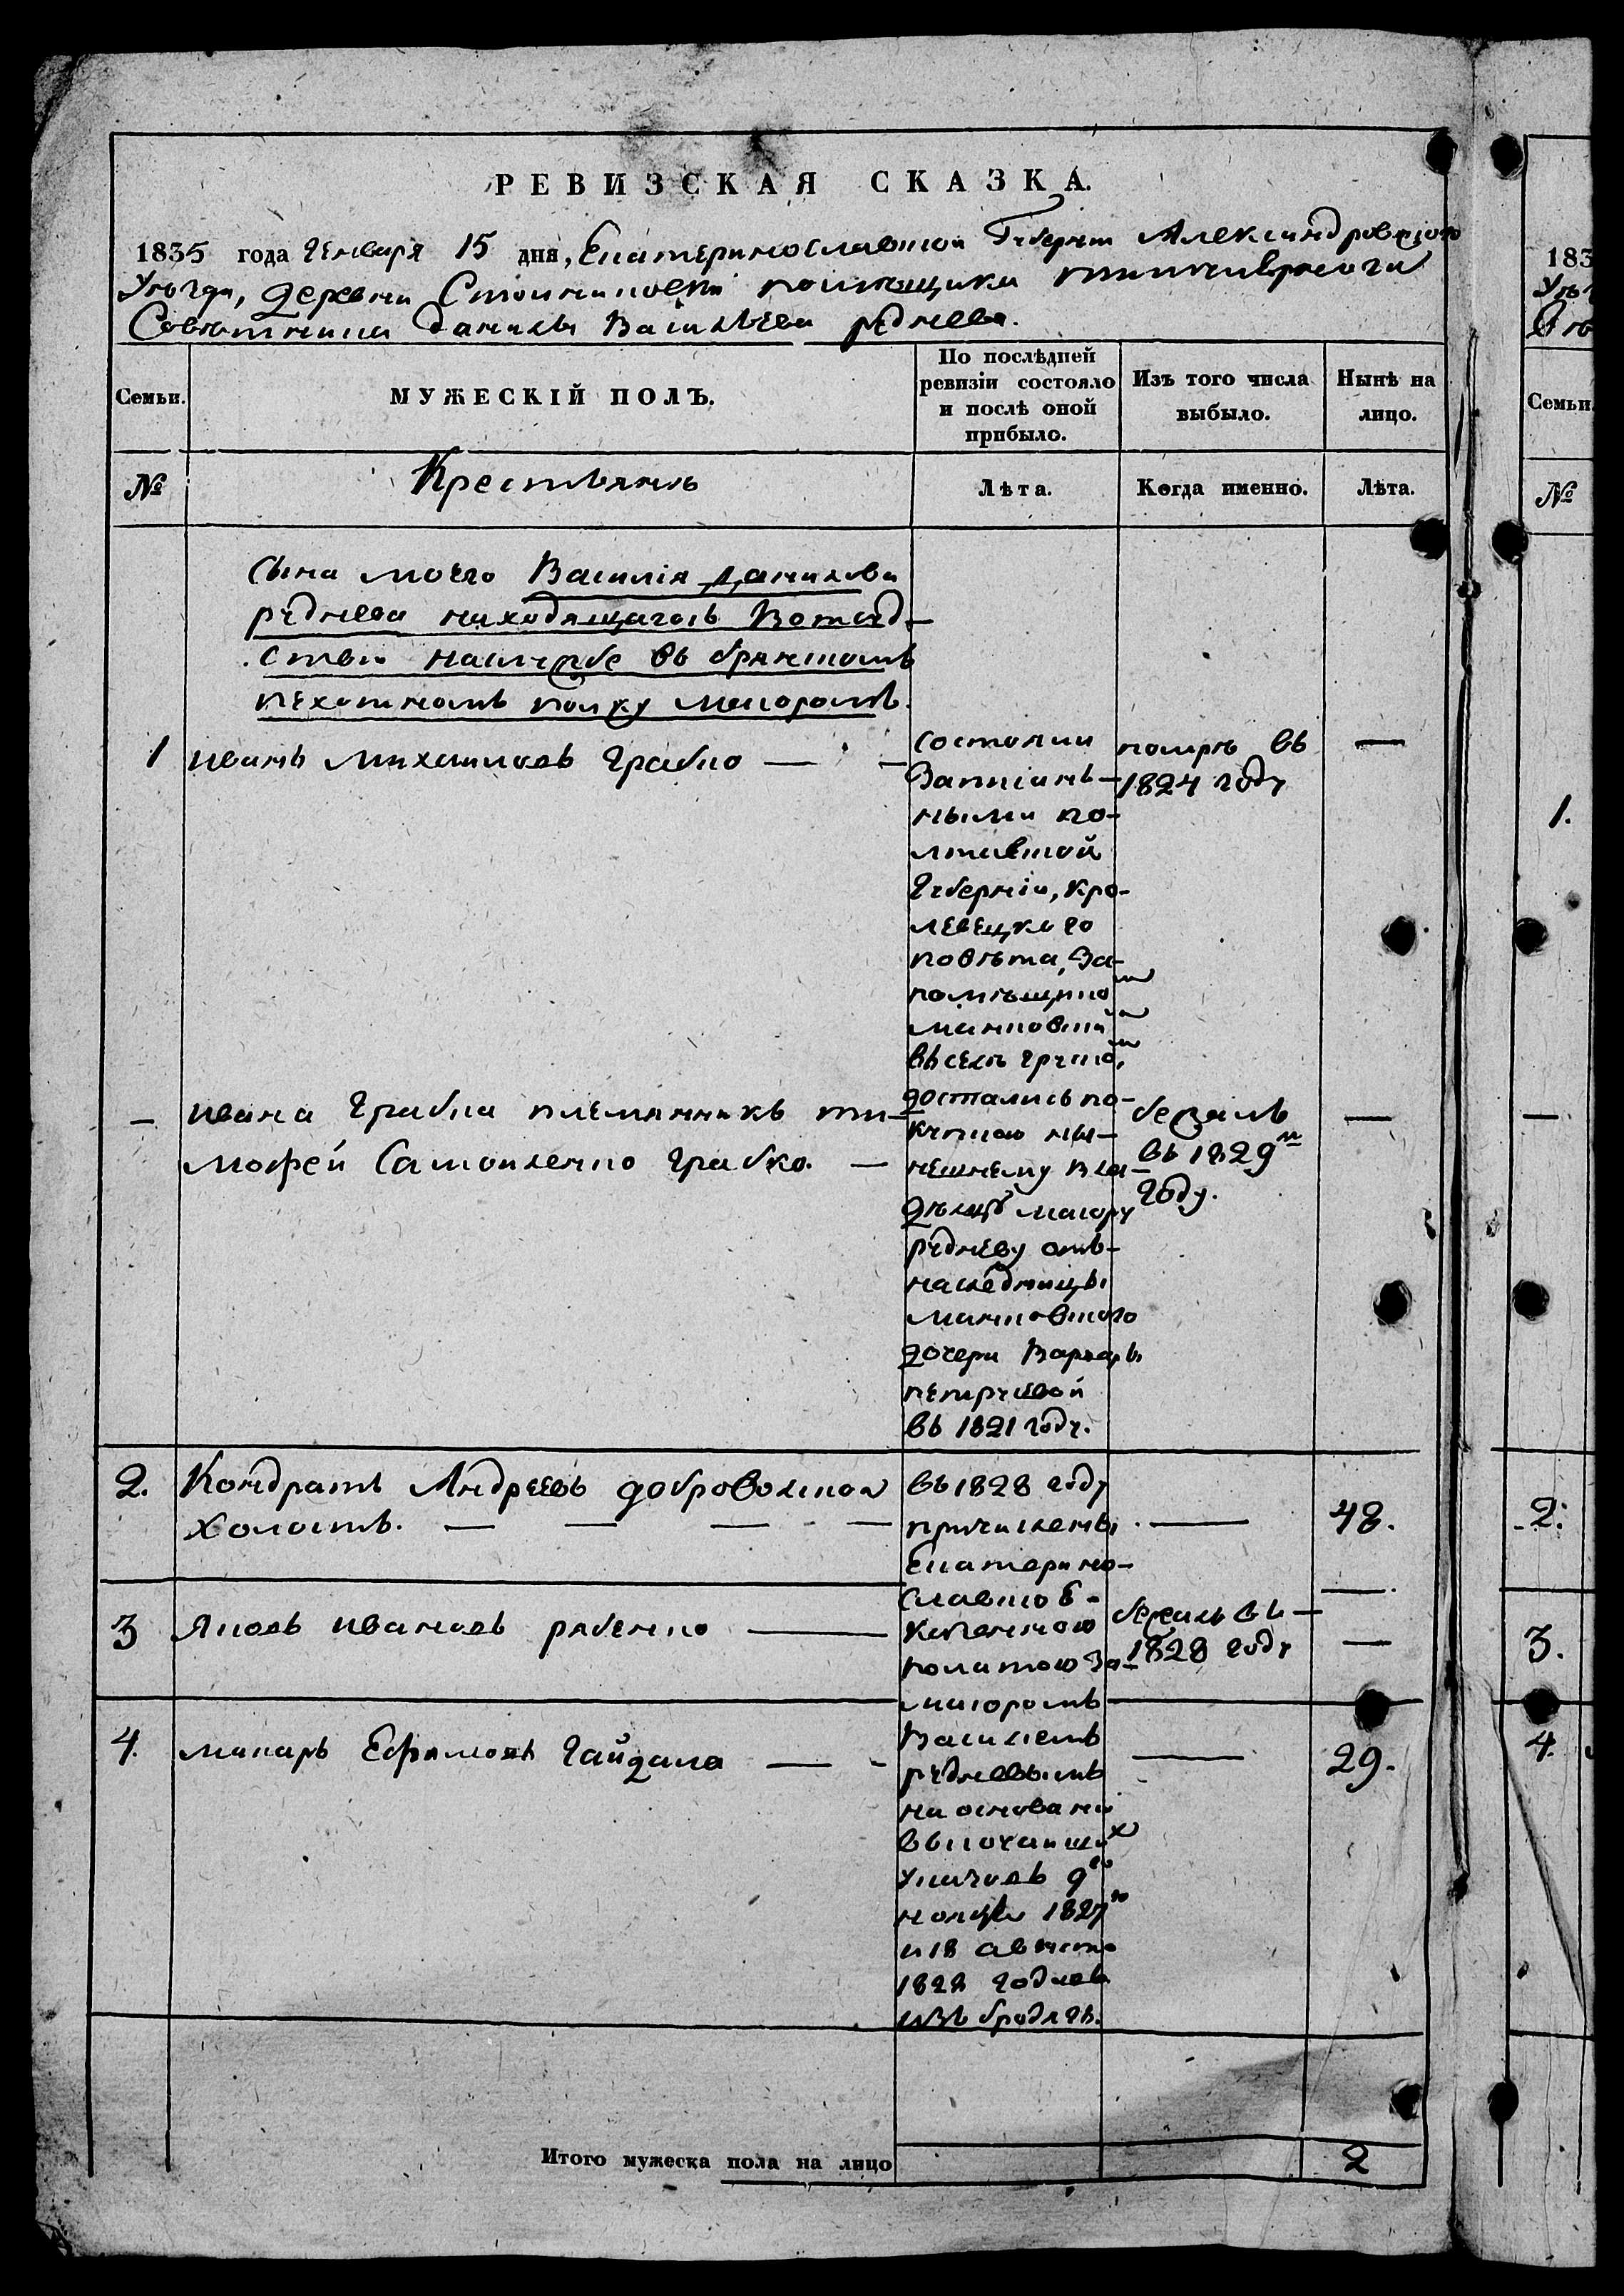 РЕВИЗСКАЯ СКАЗКА.
1835 года Генваря 15 дня, Екатеринославской Губернии Александровского
Уезда, деревни помещика титулярного
Советника Данилы Васильева руднева.
Семьи.
МУЖЕСКІЙ ПОЛЪ.
По послѣдней ревизіи состояло и послѣ оной прибыло.
Изъ того числа выбыло.
Нынѣ на лицо.
№
Крестьянъ
Лѣта.
Когда именно.
Лѣта.
Сына моего Василія Данилова
руднева находящагось Вотсуд-
ствии наслужбе въ брянскомъ
пехотномъ полку маіоромъ.
1 иванъ михайловъ Грабко —
состояли
Записан-
ными по-
лтавской
Губерніи, Кро-
левецкаго
повѣта, За-
помѣщико
манковски
въ селѣ
достались по-
купкою ны-
нешнему Вла-
дѣльцу маіору
рудневу отъ
наследницы
манковского
дочери Варвары
петруевой
въ 1821 году.
помре въ
1824 году
—
— ивана Грабка племянникъ ти-
мофей Самойленко Грабко. —
бежалъ
въ 1829м
году.
—
2. Кондратъ Андреевъ доброволской
холостъ. — — — —
въ 1828 году
причислены
Екатерино-
славскою
казенною
полатою За
маіоромъ
Василіемъ
рудневымъ
на основаніи
высочайших
указовъ 9го
ноября 1827го
и 18 августа
1828 годовъ
изъ бродягъ.
—
48.
3 Яковъ ивановъ рябенко —
бежалъ въ
1828 году
—
4. макаръ Ефимовъ Гайдала —
—
29.
Итого мужеска пола на лицо
2
183
Уѣ
Семьи.
№
1.
—
2.
3.
4.